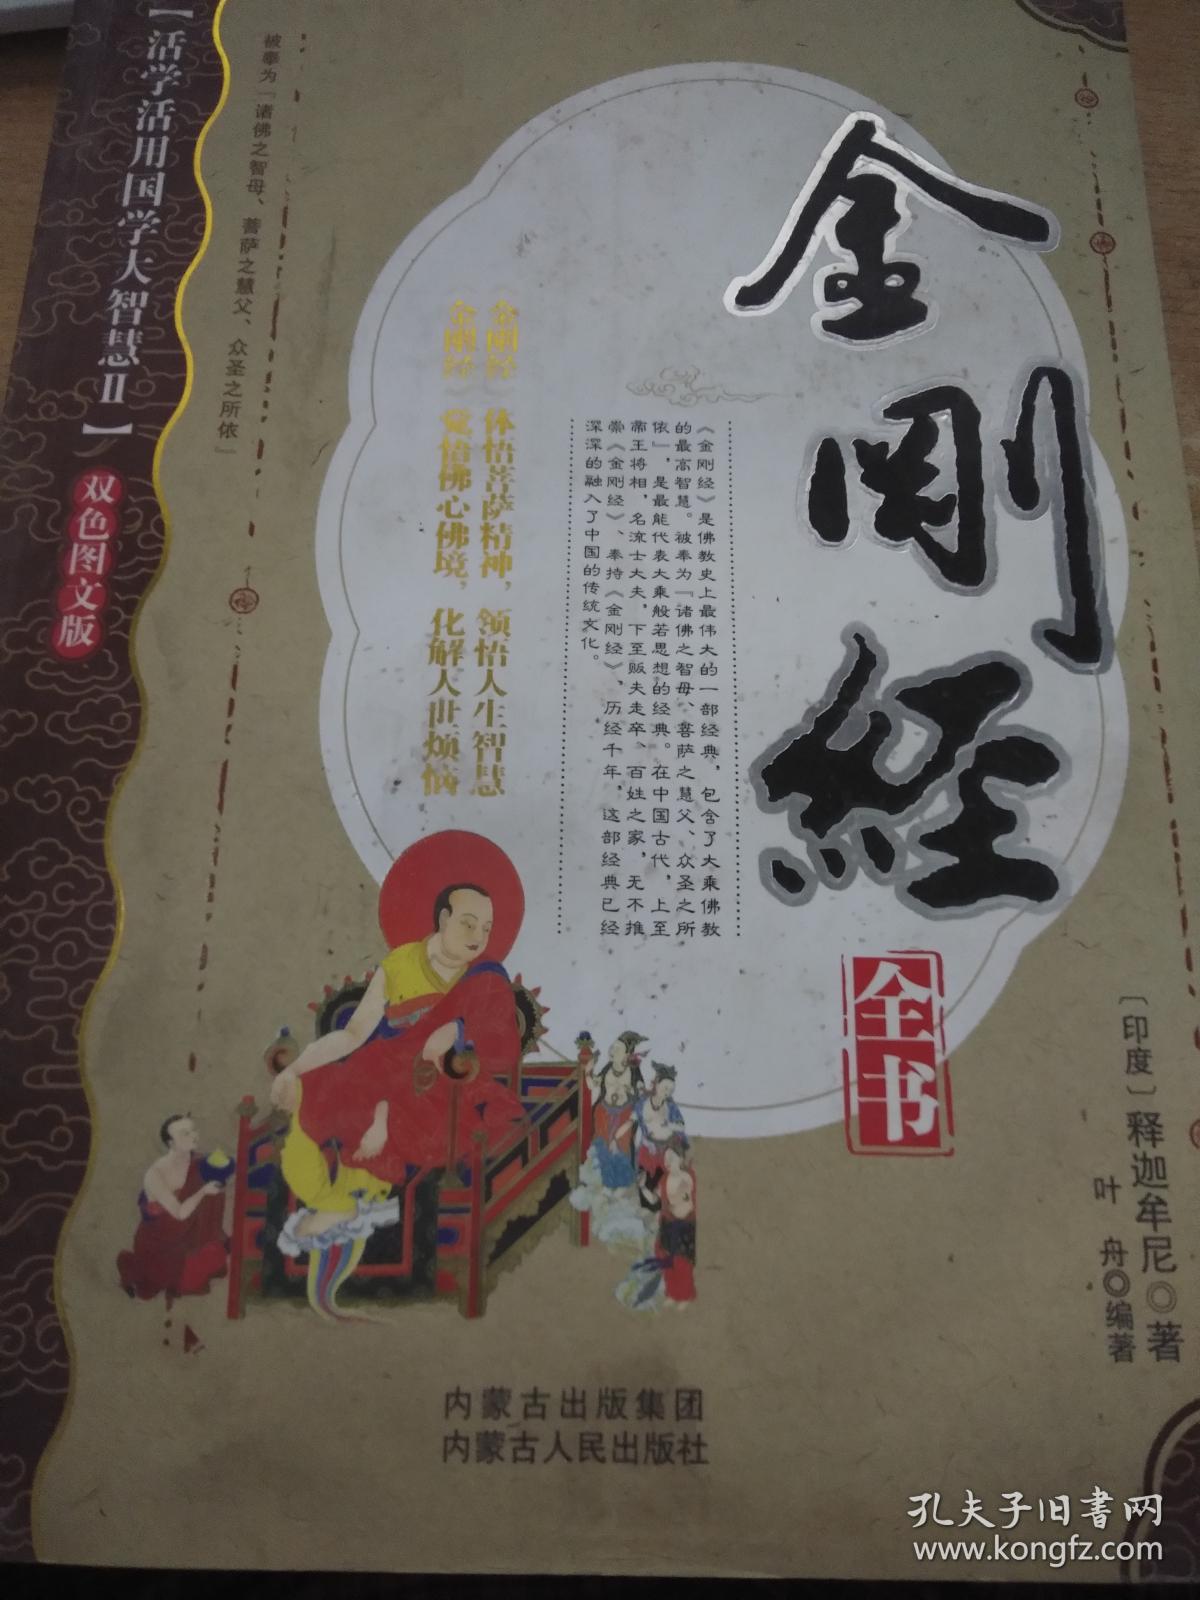 金刚经
全书
〔印度〕释迦牟尼◎著
叶舟◎编著
《金刚经》是佛教史上最伟大的一部经典，包含了大乘佛教
的最高智慧。被奉为『诸佛之智母、菩萨之慧父、众圣之所
依』，是最能代表大乘般若思想的经典。在中国古代，上至
帝王将相，名流士大夫，下至贩夫走卒、百姓之家，无不推
崇《金刚经》、奉持《金刚经》，历经千年，这部经典已经
深深的融入了中国的传统文化。
《金刚经》体悟菩萨精神，领悟人生智慧
《金刚经》觉悟佛心佛境，化解人世烦恼
被奉为『诸佛之智母、菩萨之慧父、众圣之所依』
【活学活用国学大智慧Ⅱ】
双色图文版
内蒙古出版集团
内蒙古人民出版社
孔夫子旧书网
www.kongfz.com